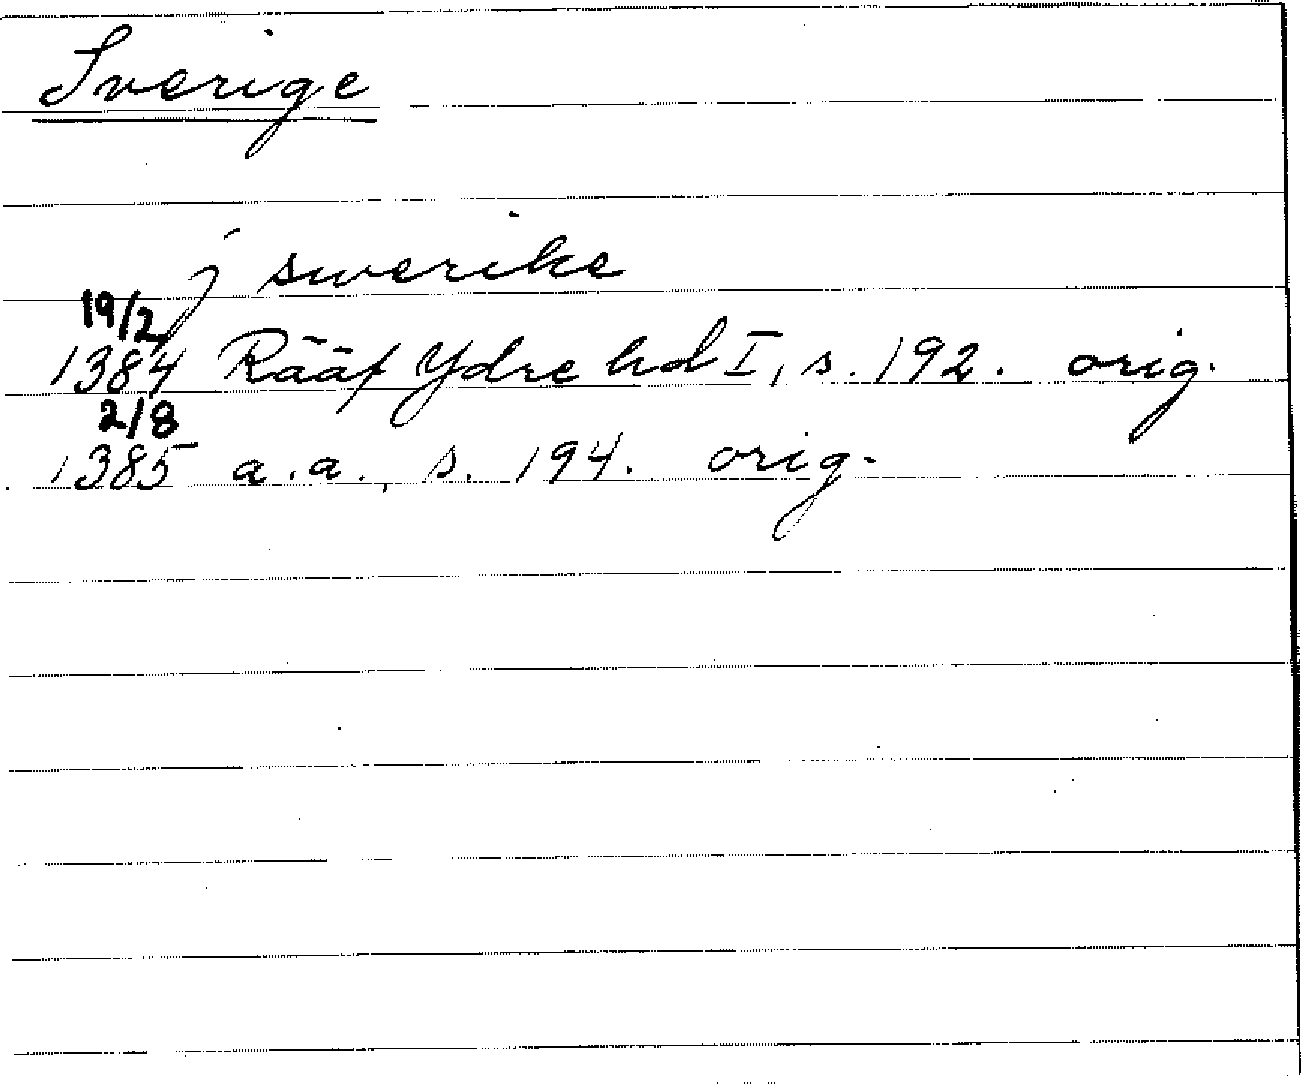 Sverige
j swerike
19/2
1384 Rääf Ydre hd I, s. 192. orig.
2/8
1385 a.a., s. 194. orig.